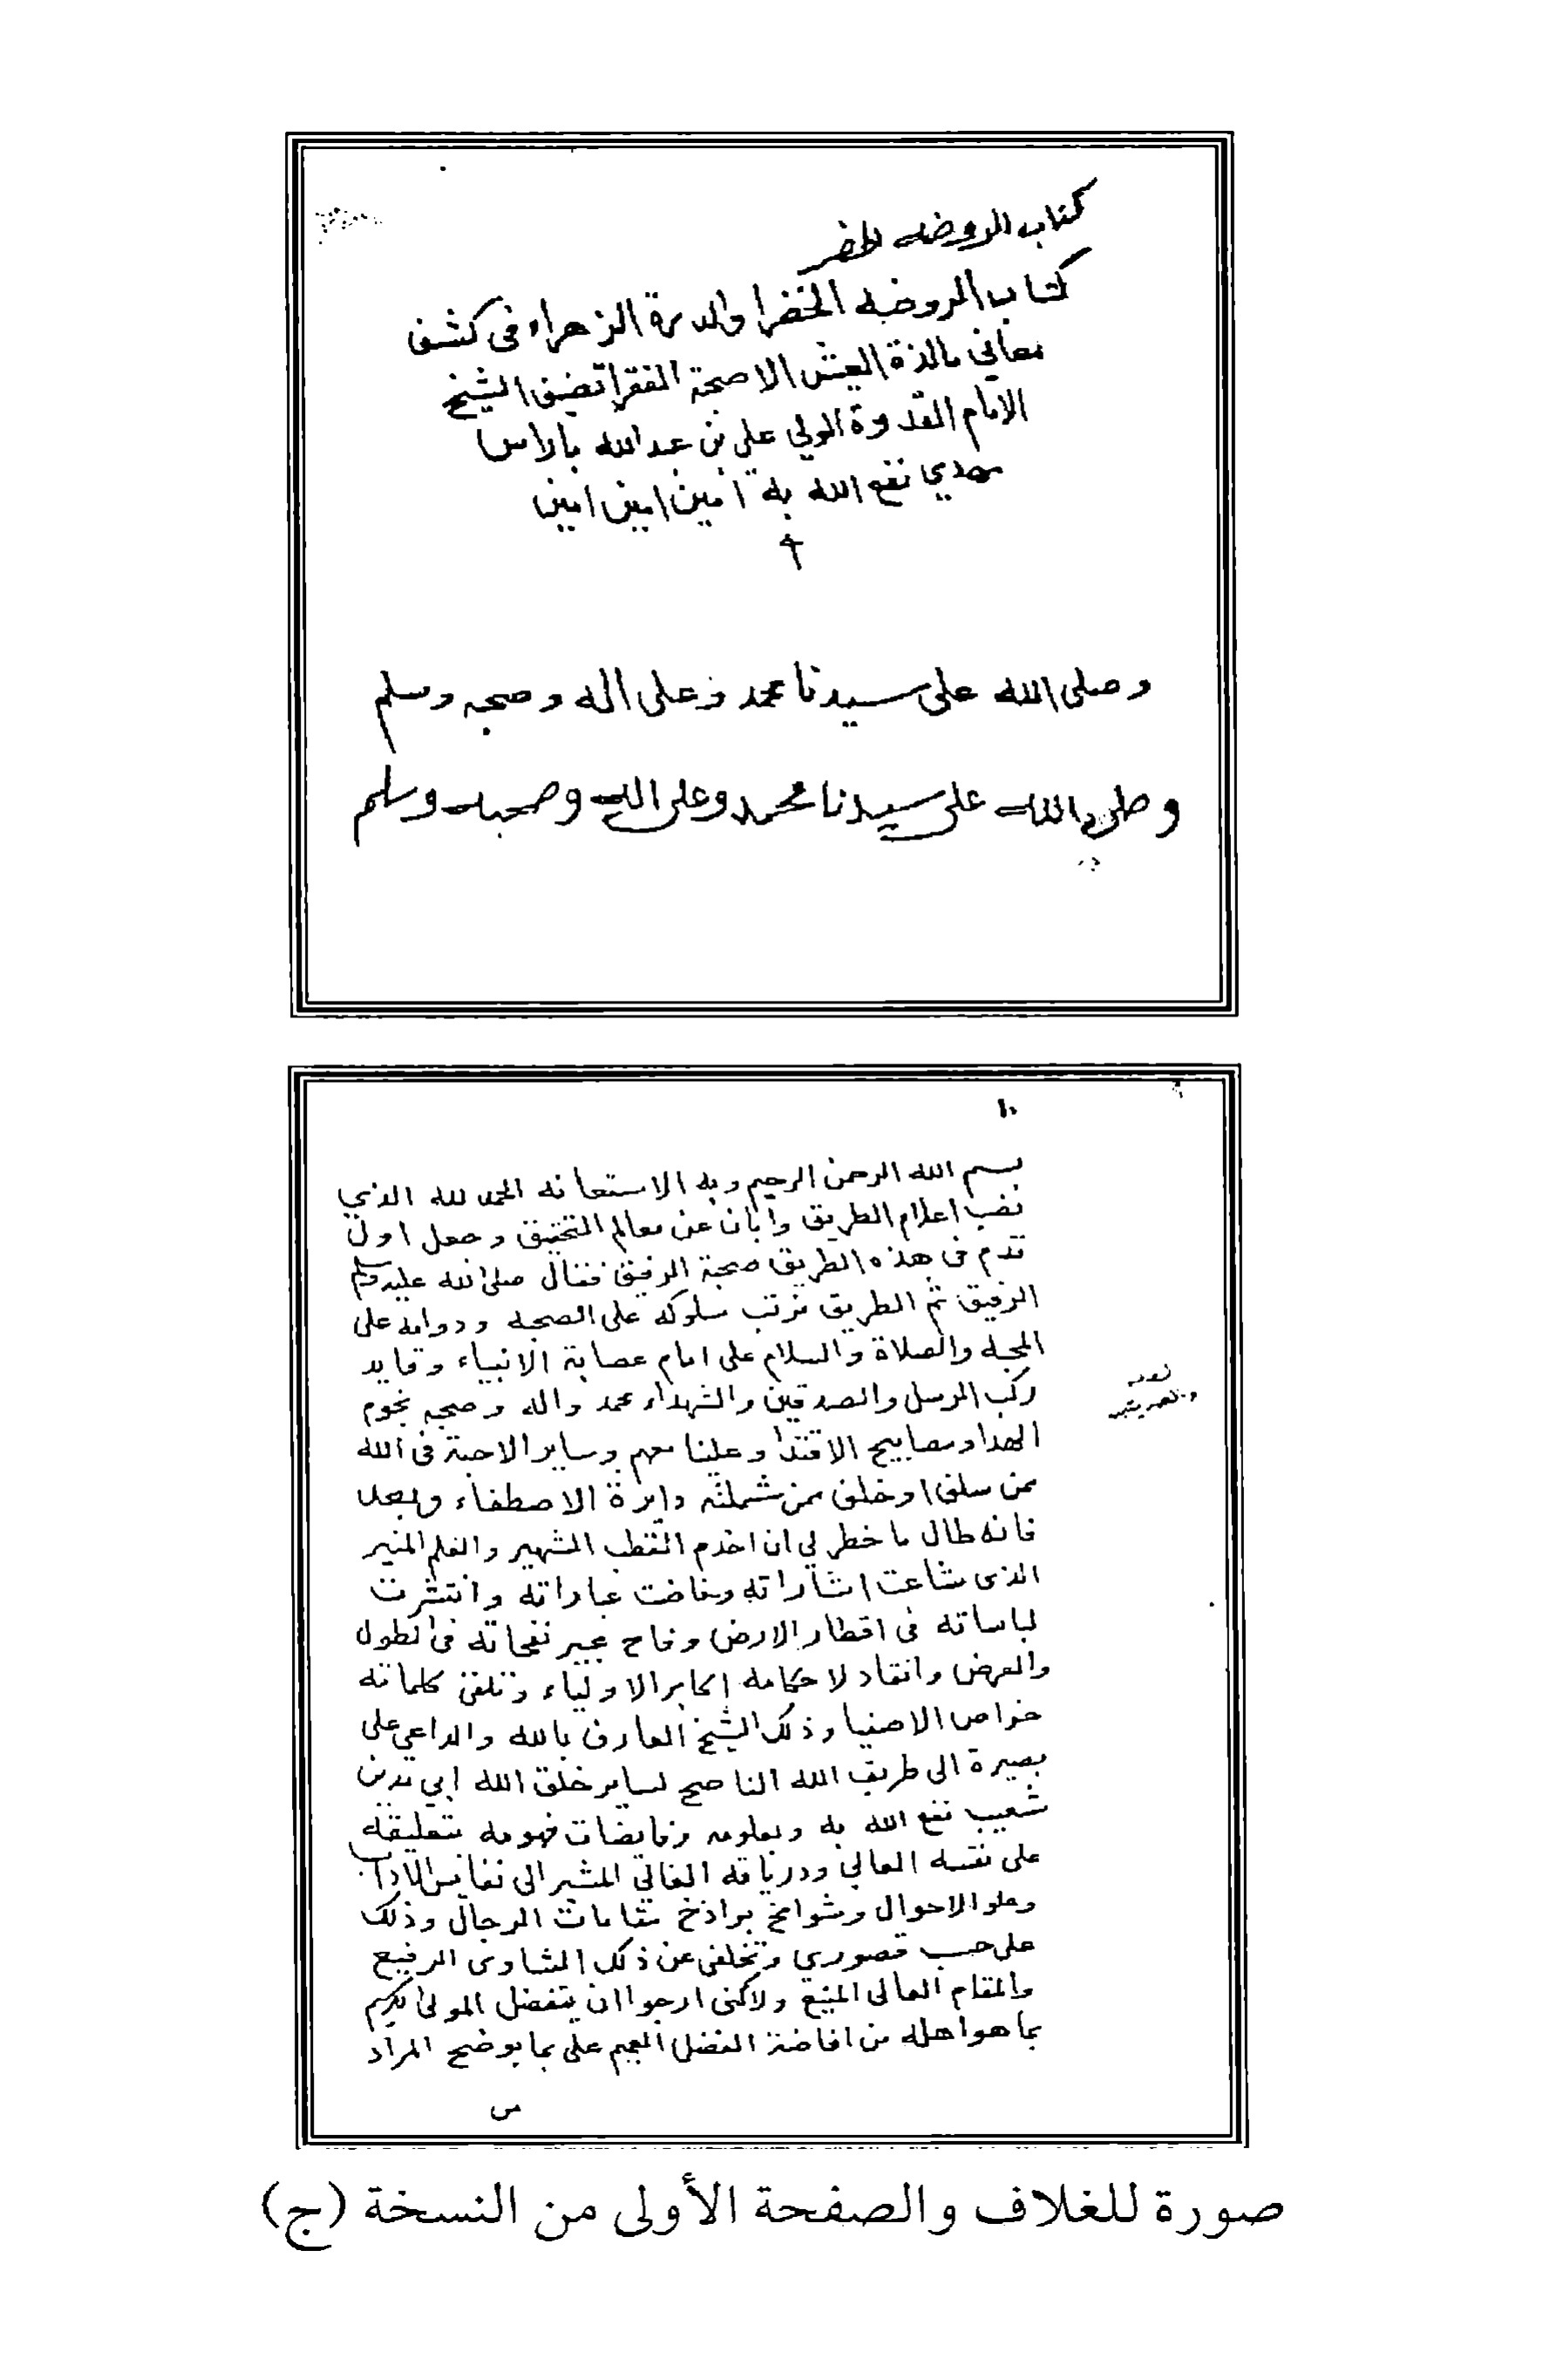 كتاب الروضه الخضر
كتاب الروضه الخضرا والدرة الزهراء في كشف
معاني مالذة العيش الا صحبة الفقرا تصنيف الشيخ
الامام القدوة الولي علي بن عبدالله باراس
نفع الله به امين امين امين
وصلى الله على سيدنا محمد وعلى اله وصحبه وسلم
وصلى الله على سيدنا محمد وعلى اله وصحبه وسلم
بسم الله الرحمن الرحيم وبه الاستعانه الحمد لله الذي
نصب اعلام الطريق وابان عن معالم التحقيق وجعل اول
قدم في هذه الطريق صحبة الرفيق فقال صلى الله عليه وسلم
الرفيق ثم الطريق فرتب سلوكه على الصحبه ودوامه على
المحبه والصلاة والسلام على امام عصابة الانبياء وقايد
ركب المرسل والصدقين والشهداء محمد واله وصحبه نجوم
الهدا ومصابيح الاقتدا وعلينا معهم وساير الاحبة في الله
ممن سلف او خلف ممن شملته دايرة الاصطفاء وبعد
فانه طال ما خطر لي ان اخدم القطب الشهير والعلم المنير
الذي شاعت اشاراته وفاضت عباراته وانتشرت
لباساته في اقطار الارض وفاح عبير نفحاته في الطول
والعرض وانقاد لاحكامه اكابر الاولياء وتلقن كلماته
خواص الاصفيا وذلك الشيخ العارف بالله والداعي على
بصيرة الى طريق الله الناصح لساير خلق الله ابي مدين
شعيب نفع الله به وبعلومه وفايضات فهومه بتعليقه
على نفسه العالي ودرياقه الغالي المشير الى نفايس الاداب
وعلو الاحوال وشوامخ براذخ مقامات الرجال وذلك
على حسب قصوري وتخلفي عن ذلك الشاوى الرفيع
والمقام العالي المنيع ولاكني ارجوا ان يتفضل المولى الكريم
بما هو اهله من افاضة الفضل العميم علي بما يوضح المراد
من
صورة للغلاف والصفحة الأولى من النسخة (ج)